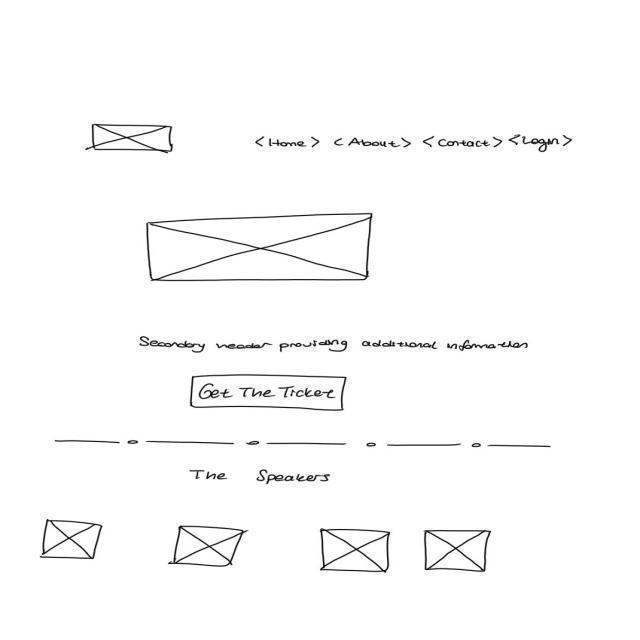 <Home> <About> <Contact> <Login>
Secondary header providing additional information
Get The Ticket
The Speakers